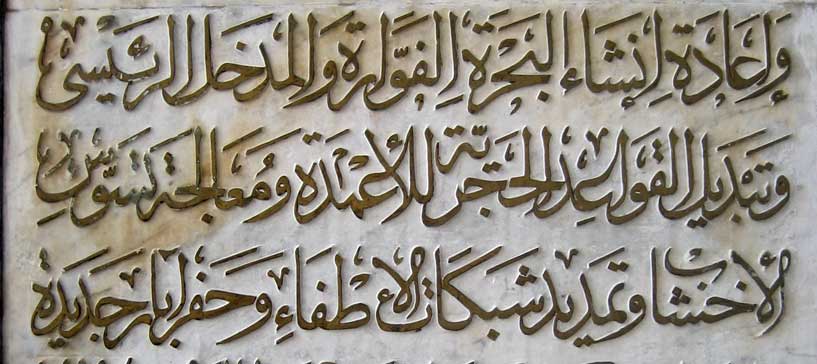 وَإِعَادَة إِنشَاءِ البَحْرَةِ الفَوَّارَةِ وَالمَدخَلِ الرَئيْسِي
وَتَبْدِيلِ القَوَاعِدِ الحَجَرِيَّة لِلأَعْمِدَةِ وَمُعَالجَة تَسَوُّسِ
الأَخشَابِ وَتمدِيدِ شَبَكَاتِ الإِطفَاءِ وَحَفرِ آبارٍ جَدِيدَةٍ